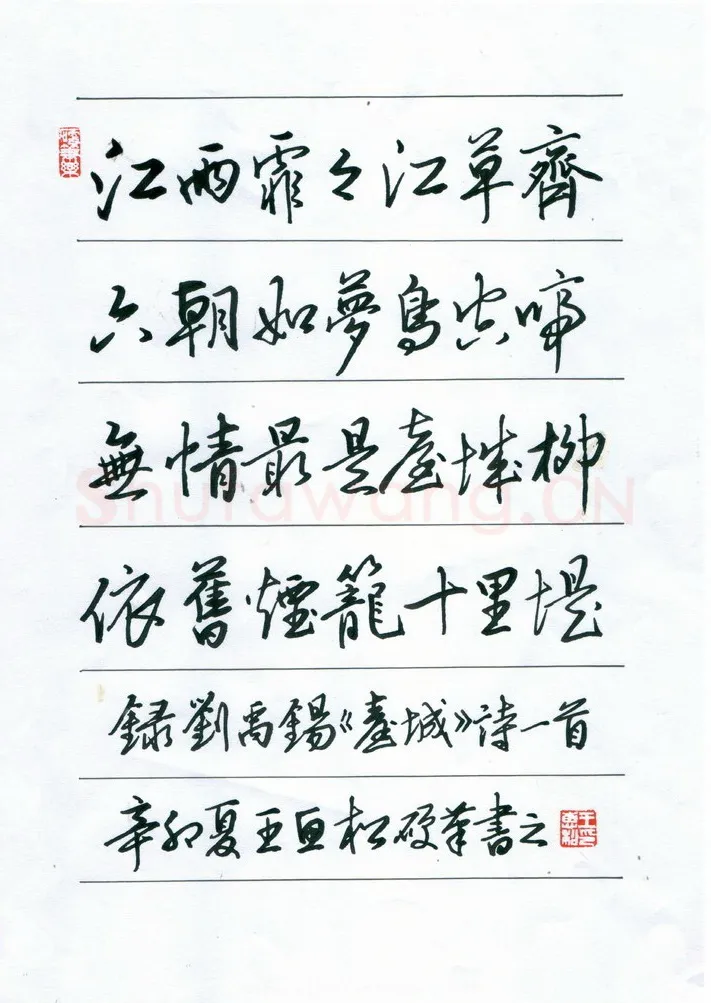 江雨霏々江草齊
六朝如夢鳥空啼
無情最是臺城柳
依舊煙籠十里堤
錄劉禹錫《臺城》詩一首
辛卯夏王惠松硬筆書之
王印惠松
Shufawang.CN